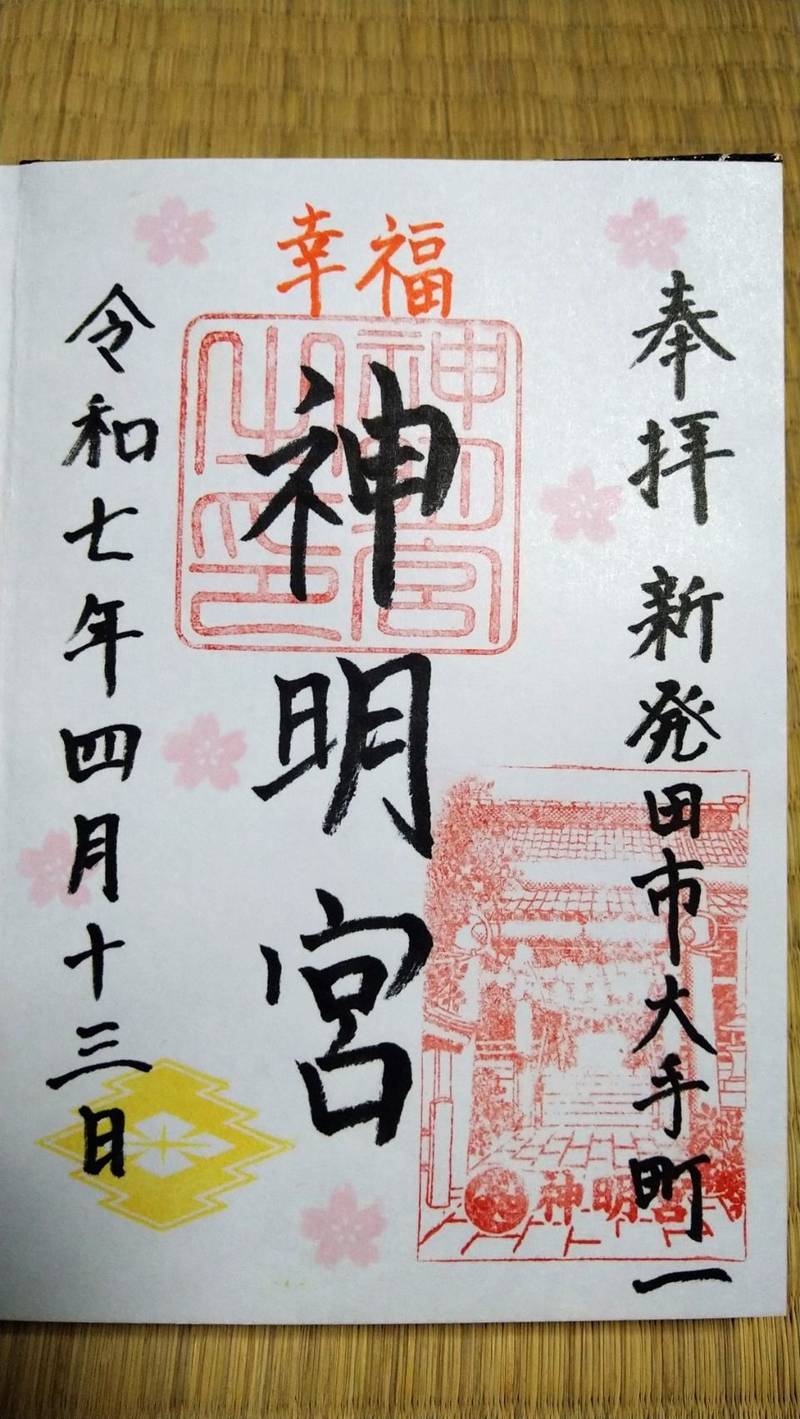 奉拝 新発田市大手町一
幸福
神明宮
神明宮之印
神明宮
令和七年四月十三日